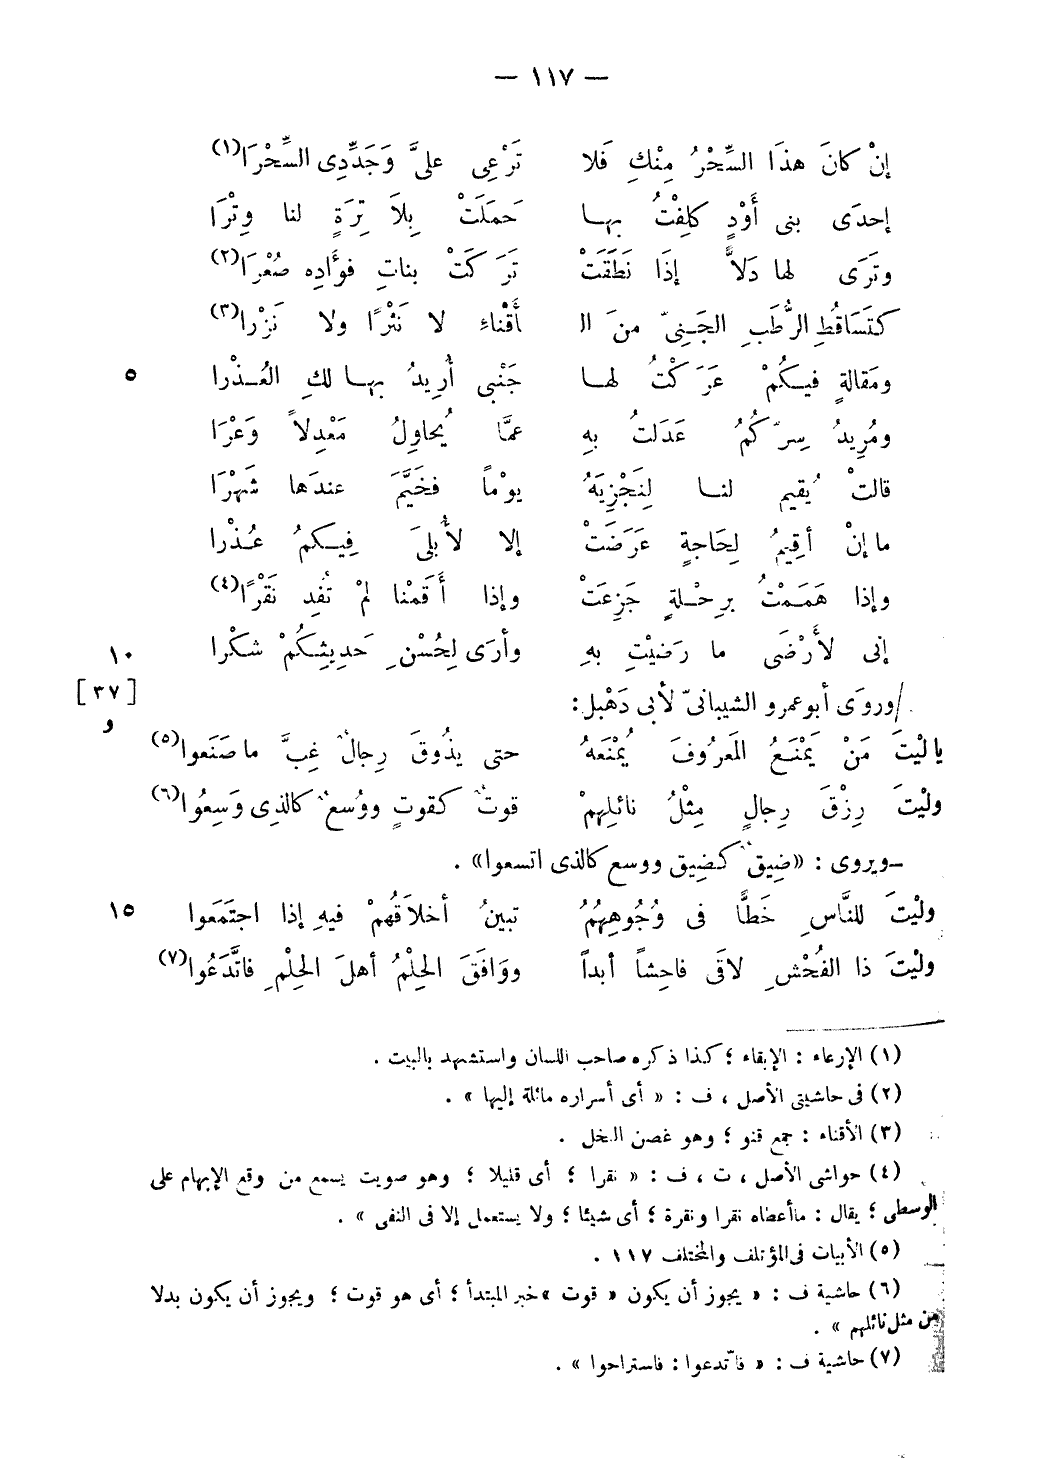 — ١١٧ —
إنْ كانَ هذَا السِّحْرُ مِنْكِ فَلا تَرْعِى علىَّ وَجَدِّدِى السِّحْرَا(١)
إحدَى بنى أَوْدٍ كلِفْتُ بها حَمَلَتْ بِلاَ تِرَةٍ لنا وِتْرَا
وتَرَى لها دَلاًّ إذَا نَطَقَتْ تَرَكَتْ بناتِ فوأَدِه صُعْرَا(٢)
كتَسَاقُطِ الرُّطَبِ الجَنِىّ منَ ال أَقْناءِ لا نَثْرًا ولا نَزْرا(٣)
ومَقالةٍ فيكُمْ عَرَكْتُ لها جَنْبى أُرِيدُ بها لكِ العُذْرا ٥
ومُرِيدُ سِرّكُمُ عَدَلتُ بهِ عمَّا يُحاوِلُ مَعْدِلاً وَعْرَا
قالتْ يُقيم لنا لِنَجْزِيَهُ يوْماً فخَيَّمَ عندَها شَهْرَا
ما إنْ أقِيمُ لِحَاجةٍ عَرَضَتْ إلا لأُبلىَ فِيكمُ عُذْرا
وإذا هَمَمْتُ برِحْلةٍ جَزِعَتْ وإذا أَقَمْنا لمْ تُفِد نَقْرًا(٤)
إنى لأَرْضَى ما رَضيْتِ بهِ وأرَى لِحُسْنِ حَدِيثِكُمْ شكْرا ١٠
/وروَى أبوعمرو الشيبانىّ لأبى دَهْبل: [٣٧ و]
يا ليْتَ مَنْ يَمْنَعُ المَعرُوفَ يُمْنَعهُ حتى يذُوقَ رِجالٌ غِبَّ ما صَنَعوا(٥)
وليْتَ رِزْقَ رِجالٍ مِثْلُ نائلِهمْ قوتٌ كقوتٍ ووُسعٌ كالذِى وَسِعُوا(٦)
–ويروى : «ضِيقٌ كضِيق ووسع كالذى اتسعوا» .
وليْتَ للنَّاسِ خَطًّا فى وُجُوهِهُمُ تبينُ أخلاَقُهمْ فيهِ إذا اجتَمَعوا ١٥
وليْتَ ذا الفُحْشِ لاقَى فاحِشاً أبداً ووَافَقَ الحِلْمُ أهلَ الحِلْمِ فاتَّدَعُوا(٧)
(١) الإرعاء : الإبقاء ؛ كذا ذكره صاحب اللسان واستشهد بالبيت .
(٢) فى حاشيتى الأصل ، ف : « أى أسراره مائلة إليها » .
(٣) الأقناء : جمع قنو ؛ وهو غصن النخل .
(٤) حواشى الأصل ، ت ، ف : « نقرا ؛ أى قليلا ؛ وهو صويت يسمع من وقع الإبهام على
الوسطى ؛ يقال : ما أعطاه نقرا ونقرة ؛ أى شيئا ؛ ولا يستعمل إلا فى النفى » .
(٥) الأبيات فى المؤتلف والمختلف ١١٧ .
(٦) حاشية ف : « يجوز أن يكون « قوت » خبر المبتدأ ؛ أى هو قوت ؛ ويجوز أن يكون بدلا
من مثل نائلهم » .
(٧) حاشية ف : « فاتّدعوا : فاستراحوا » .